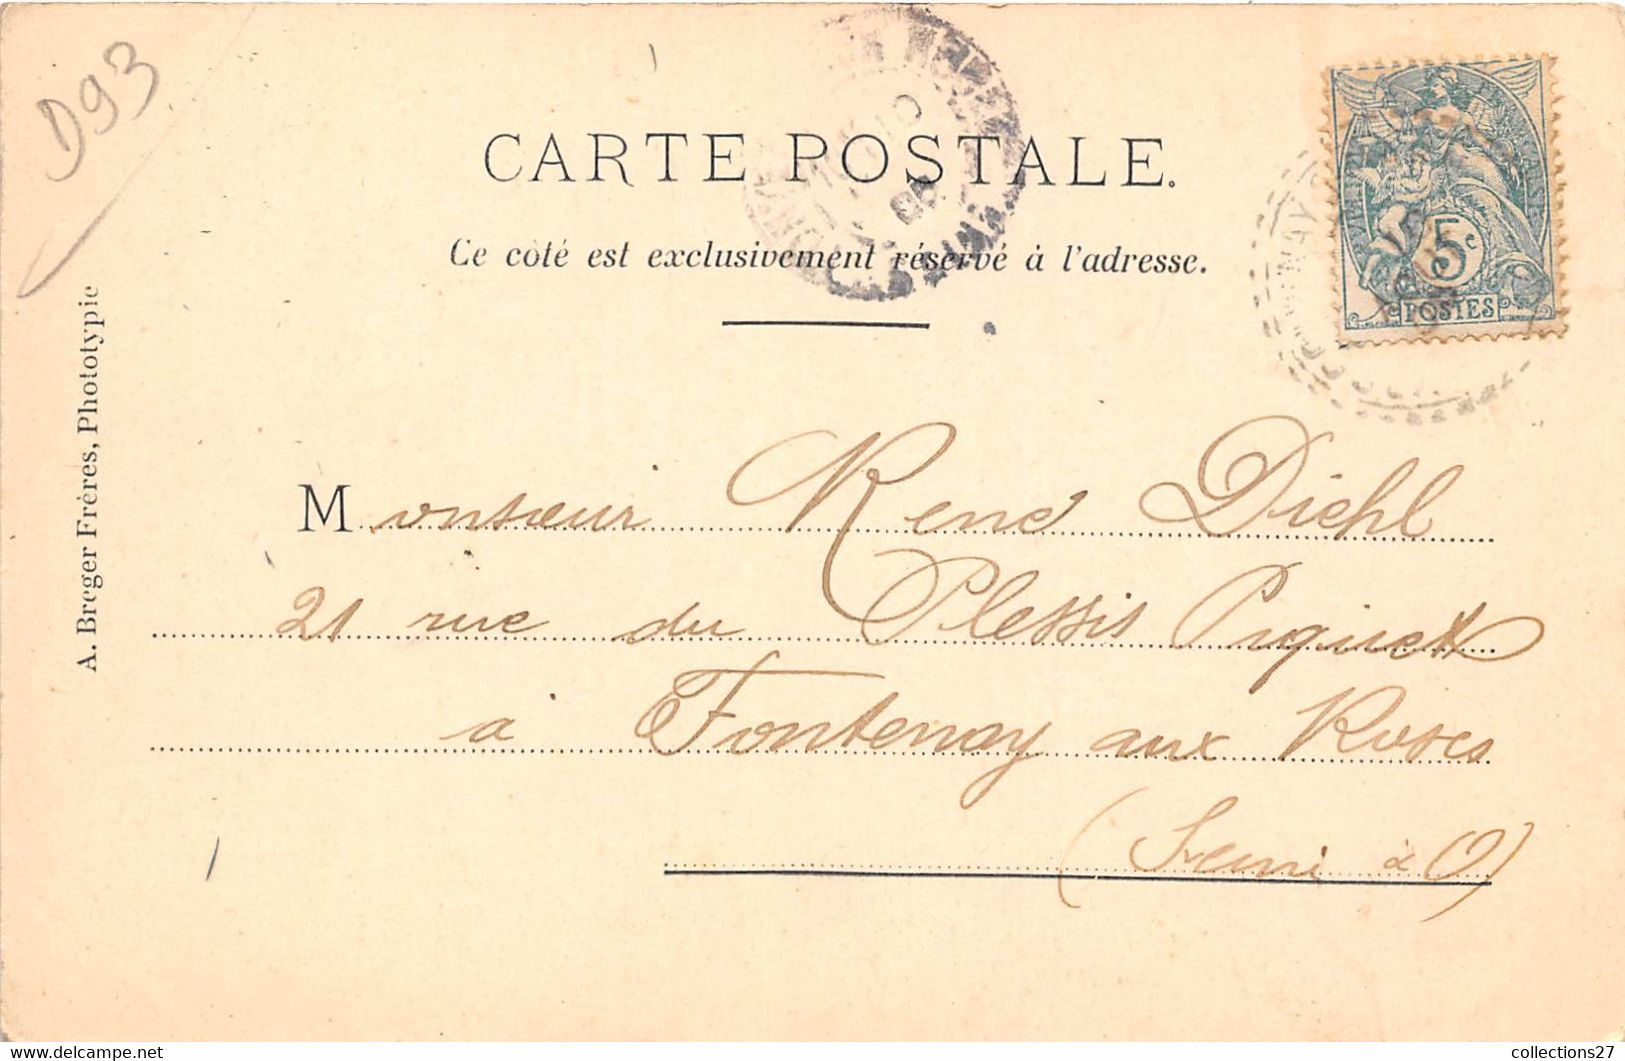 D93
CARTE POSTALE.
Ce côté est exclusivement réservé à l'adresse.
5c
POSTES
A. Breger Frères, Phototypie
Monsieur René Diehl
21 rue du Plessis Piquet
à Fontenay aux Roses
(Seine & O)
www.delcampe.net
collections27